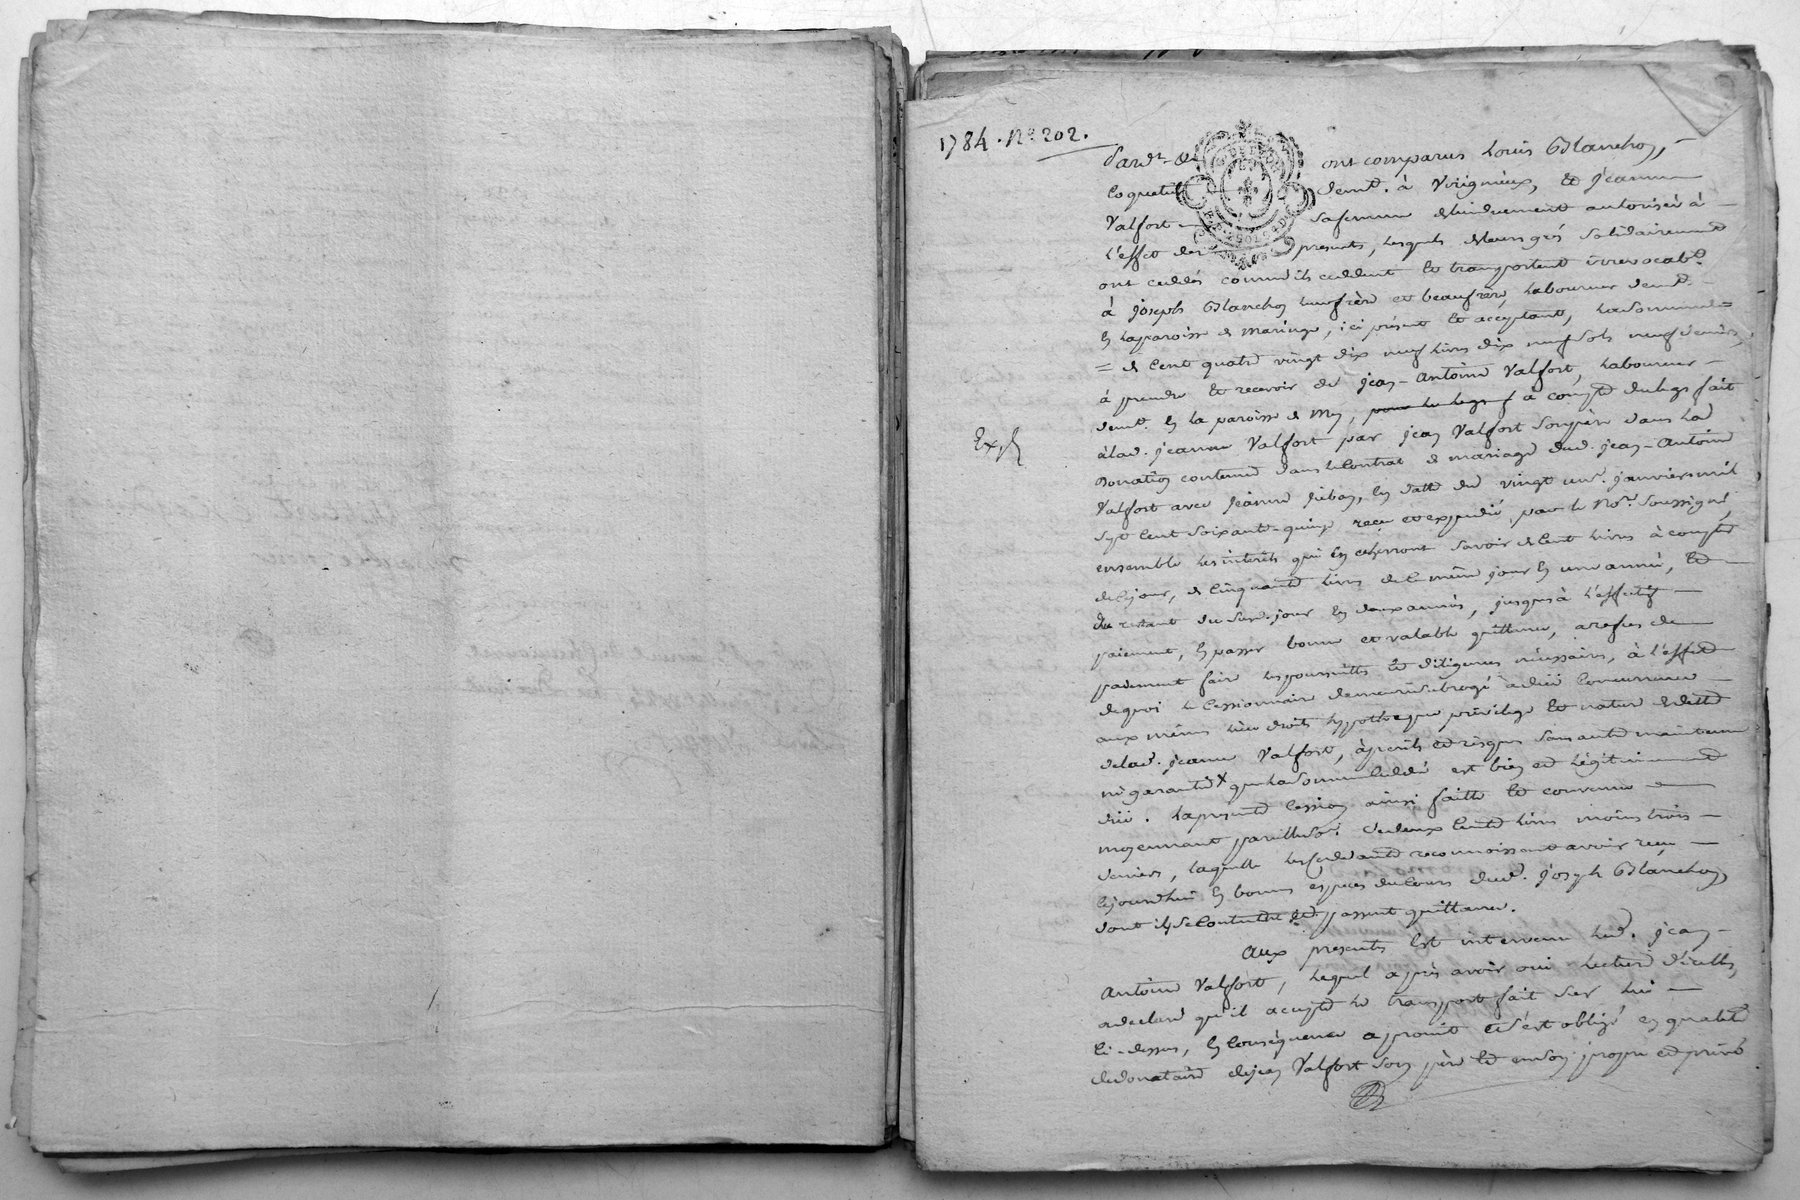 1784. N.º 202.
Pard.t &c ont comparus Louis Blanchon,
Coquetier demt. à Virigneux, et jeanne
Valfort sa femme de lui duement autorisée à
l'effet des presentes, lesquels de leurs grés solidairement
ont cedés comme ils cedent et transportent irrevocabt.
à joseph Blanchon leur frère et beaufrère, laboureur demt.
en la paroisse de maringe, ici présent et acceptant, la somme
de cent quatre vingt dix neuf livres dix neuf sols neuf deniers,
à prendre et recevoir de jean-antoine Valfort, laboureur
demt. en la paroisse de à compte du legs fait
à lad. jeanne Valfort par jean Valfort son père dans la
donation contenue dans le contrat de mariage dud. jean-antoine
Valfort avec jeanne en datte du vingt un janvier mil
sept cent soixante-quinze, reçu et expédié par le No.re soussigné,
ensemble les interets qui en echerront savoir de cent livres à compter
de ce jour, de cinquante livres de ce même jour en une année, et
du restant du susd. jour en deux années, jusques à l'effectif
paiement, en passer bonne et valable quittance, a refus de
paiement faire les poursuittes et diligences nécessaires, à l'effet
de quoi le Cessionnaire demeure subrogé a due concurrence
aux mêmes lieu droits hypotheque privilege et nature de dette
de lad. jeanne Valfort, à perils et risques sans autre maintenue
ni garantie x que la somme cedée est bien et légitimement
due. la presente cession ainsi faitte et convenue
moyennant pareille so.e de deux cents livres moins trois
deniers, laquelle les cedants reconnoissent avoir reçu
cejourdhui en bonnes especes du cours dud. joseph Blanchon,
dont ils se contentent et passent quittance.
Aux presentes est intervenu led. jean
antoine Valfort, lequel après avoir oui lecture d'icelles,
a declaré qu'il accepte le transport fait sur lui
ci-dessus, en conséquence a promit et s'est obligé en qualité
de donataire de jean Valfort son père et en son propre et privé